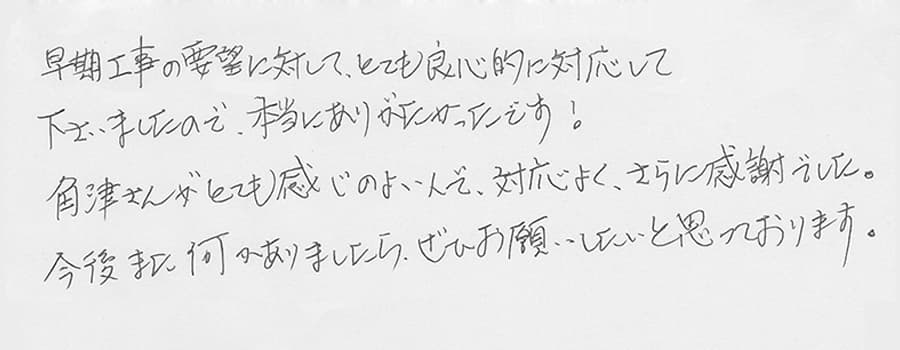 早期工事の要望に対して、とても良心的に対応して
下さいましたので、本当にありがたかったです！
角津さんがとても感じのよい人で、対応よく、さらに感謝でした。
今後また何かありましたら、ぜひお願いしたいと思っております。